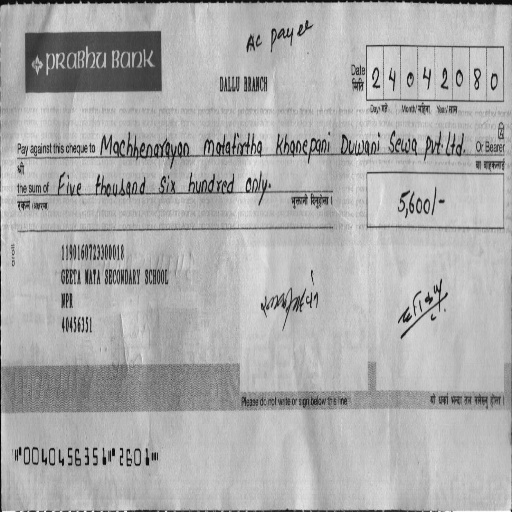 AC payee
PRABHU BANK
DALLU BRANCH
Date मिति 24042080
Day/ गते Month/ महिना Year/ साल
Pay against this cheque to Machhenarayan matatirtha Khanepani Duwani Sewa Pvt. Ltd. Or Bearer
श्री वा वाहकलाई
the sum of Five thousand six hundred only. 5,600/-
रकम (अक्षरमा) भुक्तानी दिनुहोला ।
1190160723300018
GEETA MATA SECONDARY SCHOOL
NPR
40456351
Please do not write or sign below this line
⑈0040456351⑈2601⑈